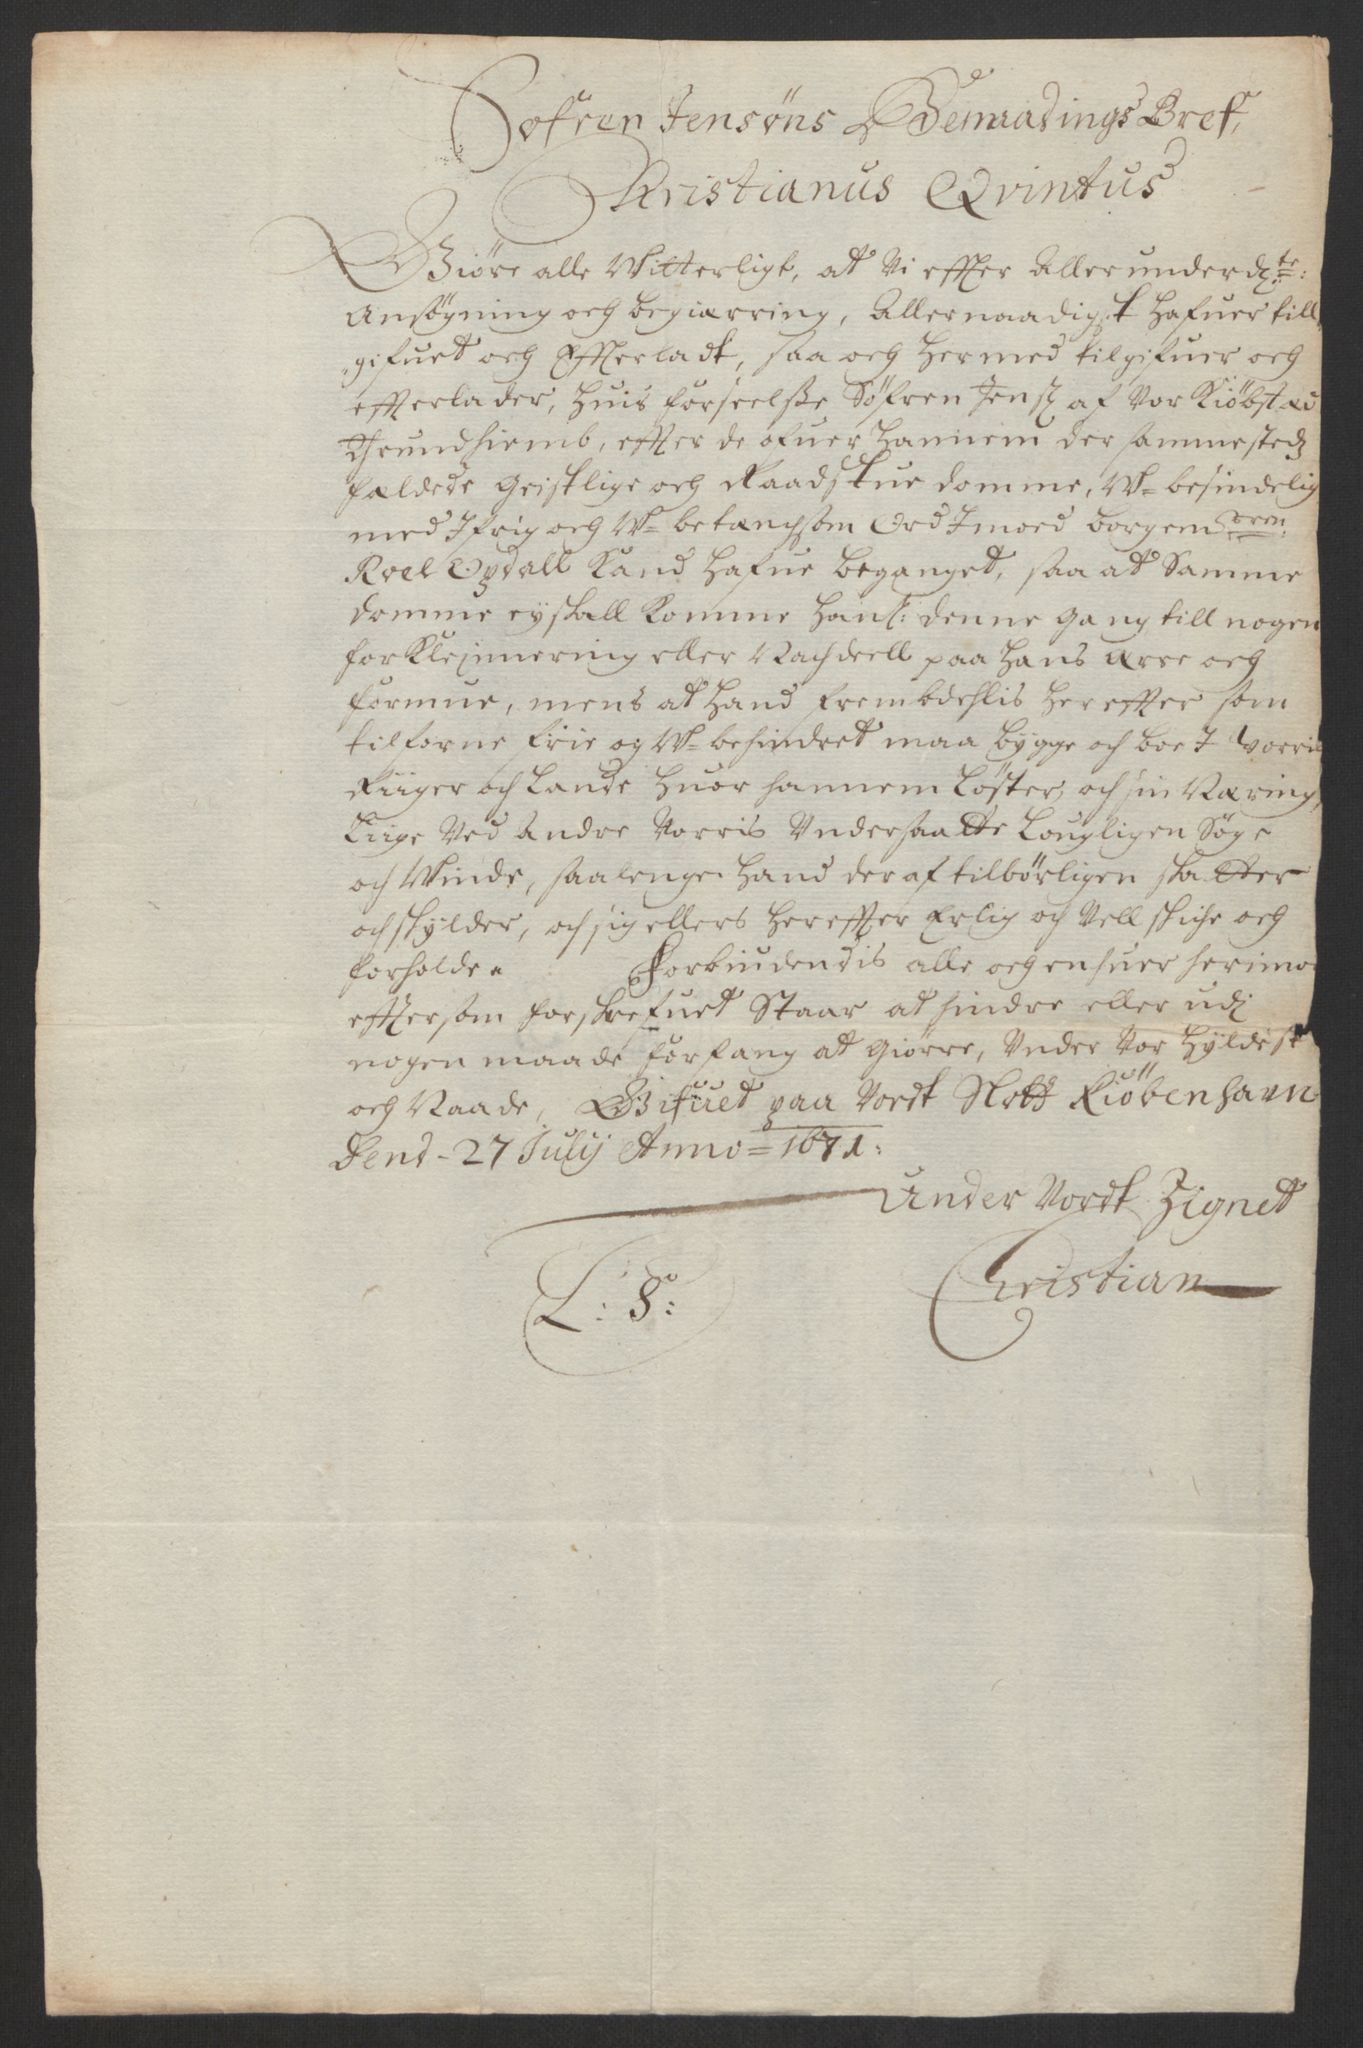 Søfren Jensøns Benaadings Breff,
Christianus Qvintus
Giøre alle Witterligt, at Vi effter Allerunderd: te:
Ansøgning och begiærring, Allernaadigst hafuer till
gifuet och Effterladt, saa och hermed tilgifuer och
effterlader, huis forseelsse Søfren Jens: af Vor Kiøbstæd
Trundhiemb, effter de ofuer hannem der sammesteds
fældede Geistlige och Raadstue domme, W=besindelig
med Ifrig och W=betænchsom Ord Imoed borgem:
Roel Opdall Kand hafue beganget, saa at Samme
domme ey skall Komme ham: denne gang till nogen
forKlejnnering eller Nachdeell paa hans ærre och
formue, mens at hand frembdehlis hereffter som
tilforne frie og W=behindret maa bygge och boe I Vorris
Riiger och Lande huor hannem Løster, och sin Næring,
Liige Ved andre Vorris Vndersaatte Lougligen Søge
och Winde, saalenge hand der af tilbørligen skatter
och skylder, och sig ellers hereffter Erlig och Vell skiche och
forholder Forbiudendis alle och enhuer herimod
efftersom forskrefuet Staar at hindre eller udj
nogen maade forfang at Giørre, Vnder Vor hyldest
och Naade, Gifuet paa Vordt Slott Kiøbenhavn
Dend - 27 July Anno = 1671:
Under Vordt Zignet
L: S: Christian